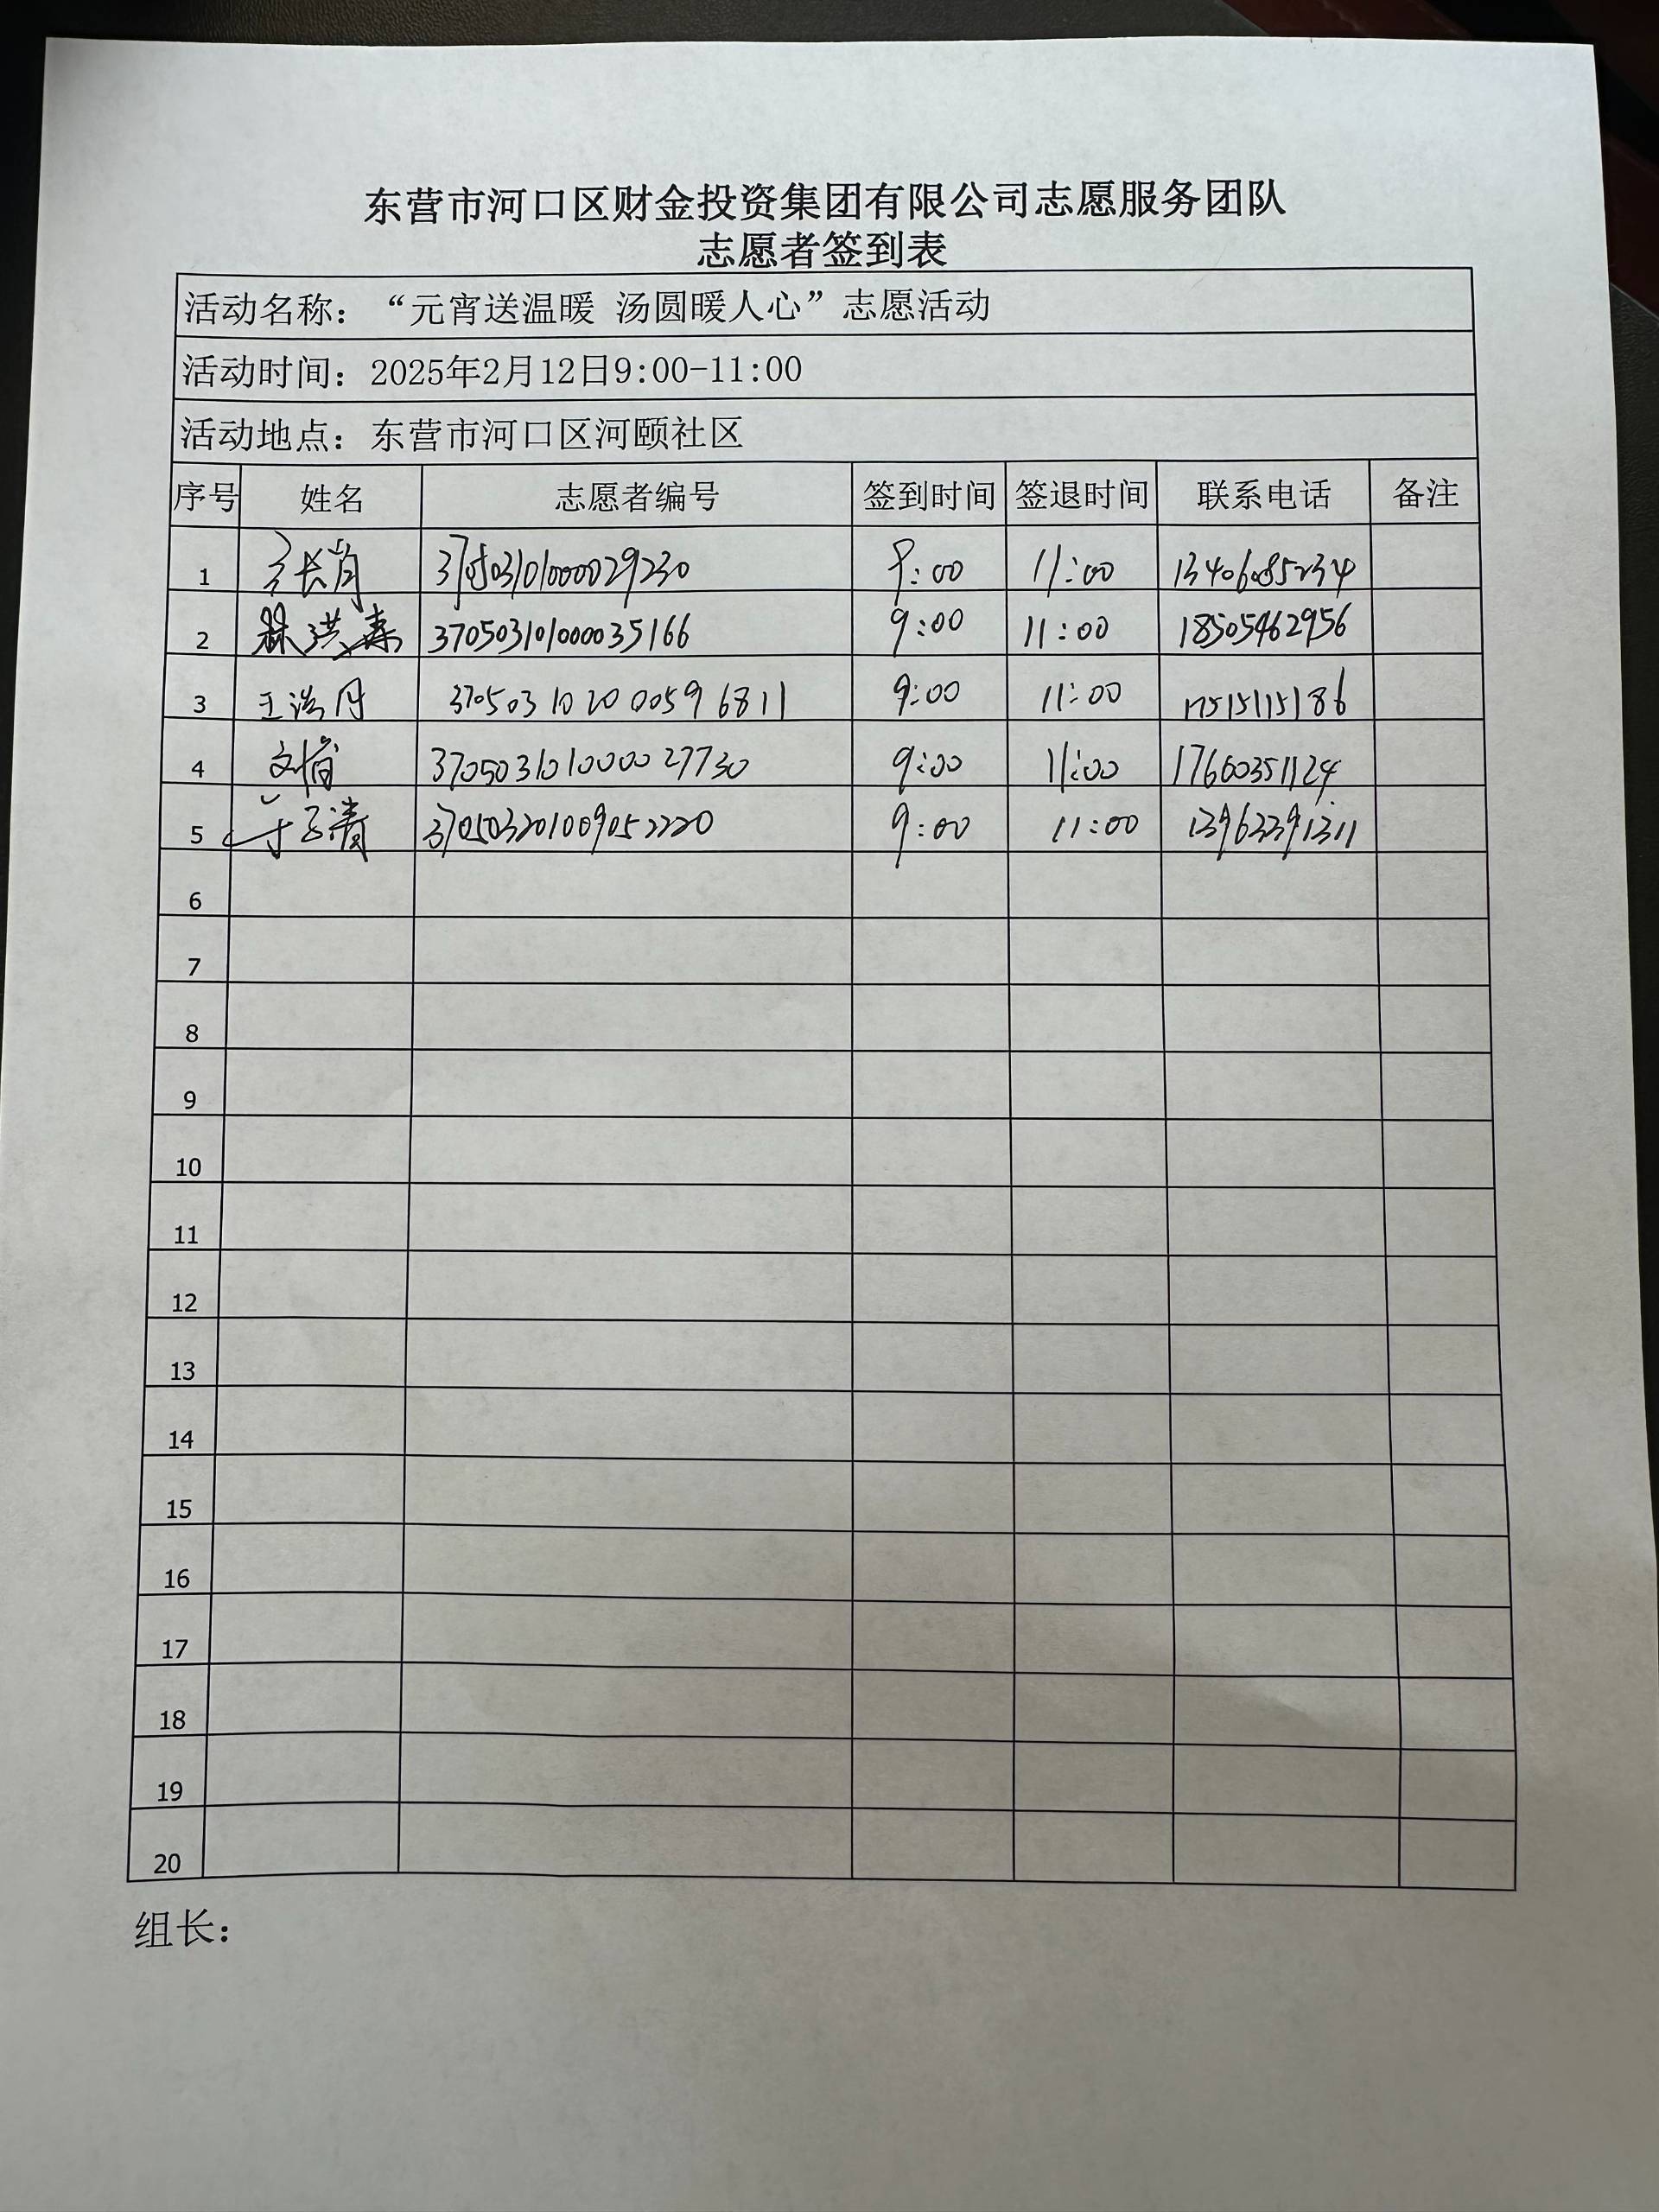 东营市河口区财金投资集团有限公司志愿服务团队
志愿者签到表
活动名称：“元宵送温暖 汤圆暖人心”志愿活动
活动时间：2025年2月12日9:00-11:00
活动地点：东营市河口区河颐社区
序号 姓名 志愿者编号 签到时间 签退时间 联系电话 备注
1 370503101000029230 9:00 11:00 13406085234
2 370503101000035166 9:00 11:00 18505462956
3 370503102000596811 9:00 11:00 17515115186
4 370503101000027730 9:00 11:00 17660351124
5 370503201009052220 9:00 11:00 13963391311
6
7
8
9
10
11
12
13
14
15
16
17
18
19
20
组长：